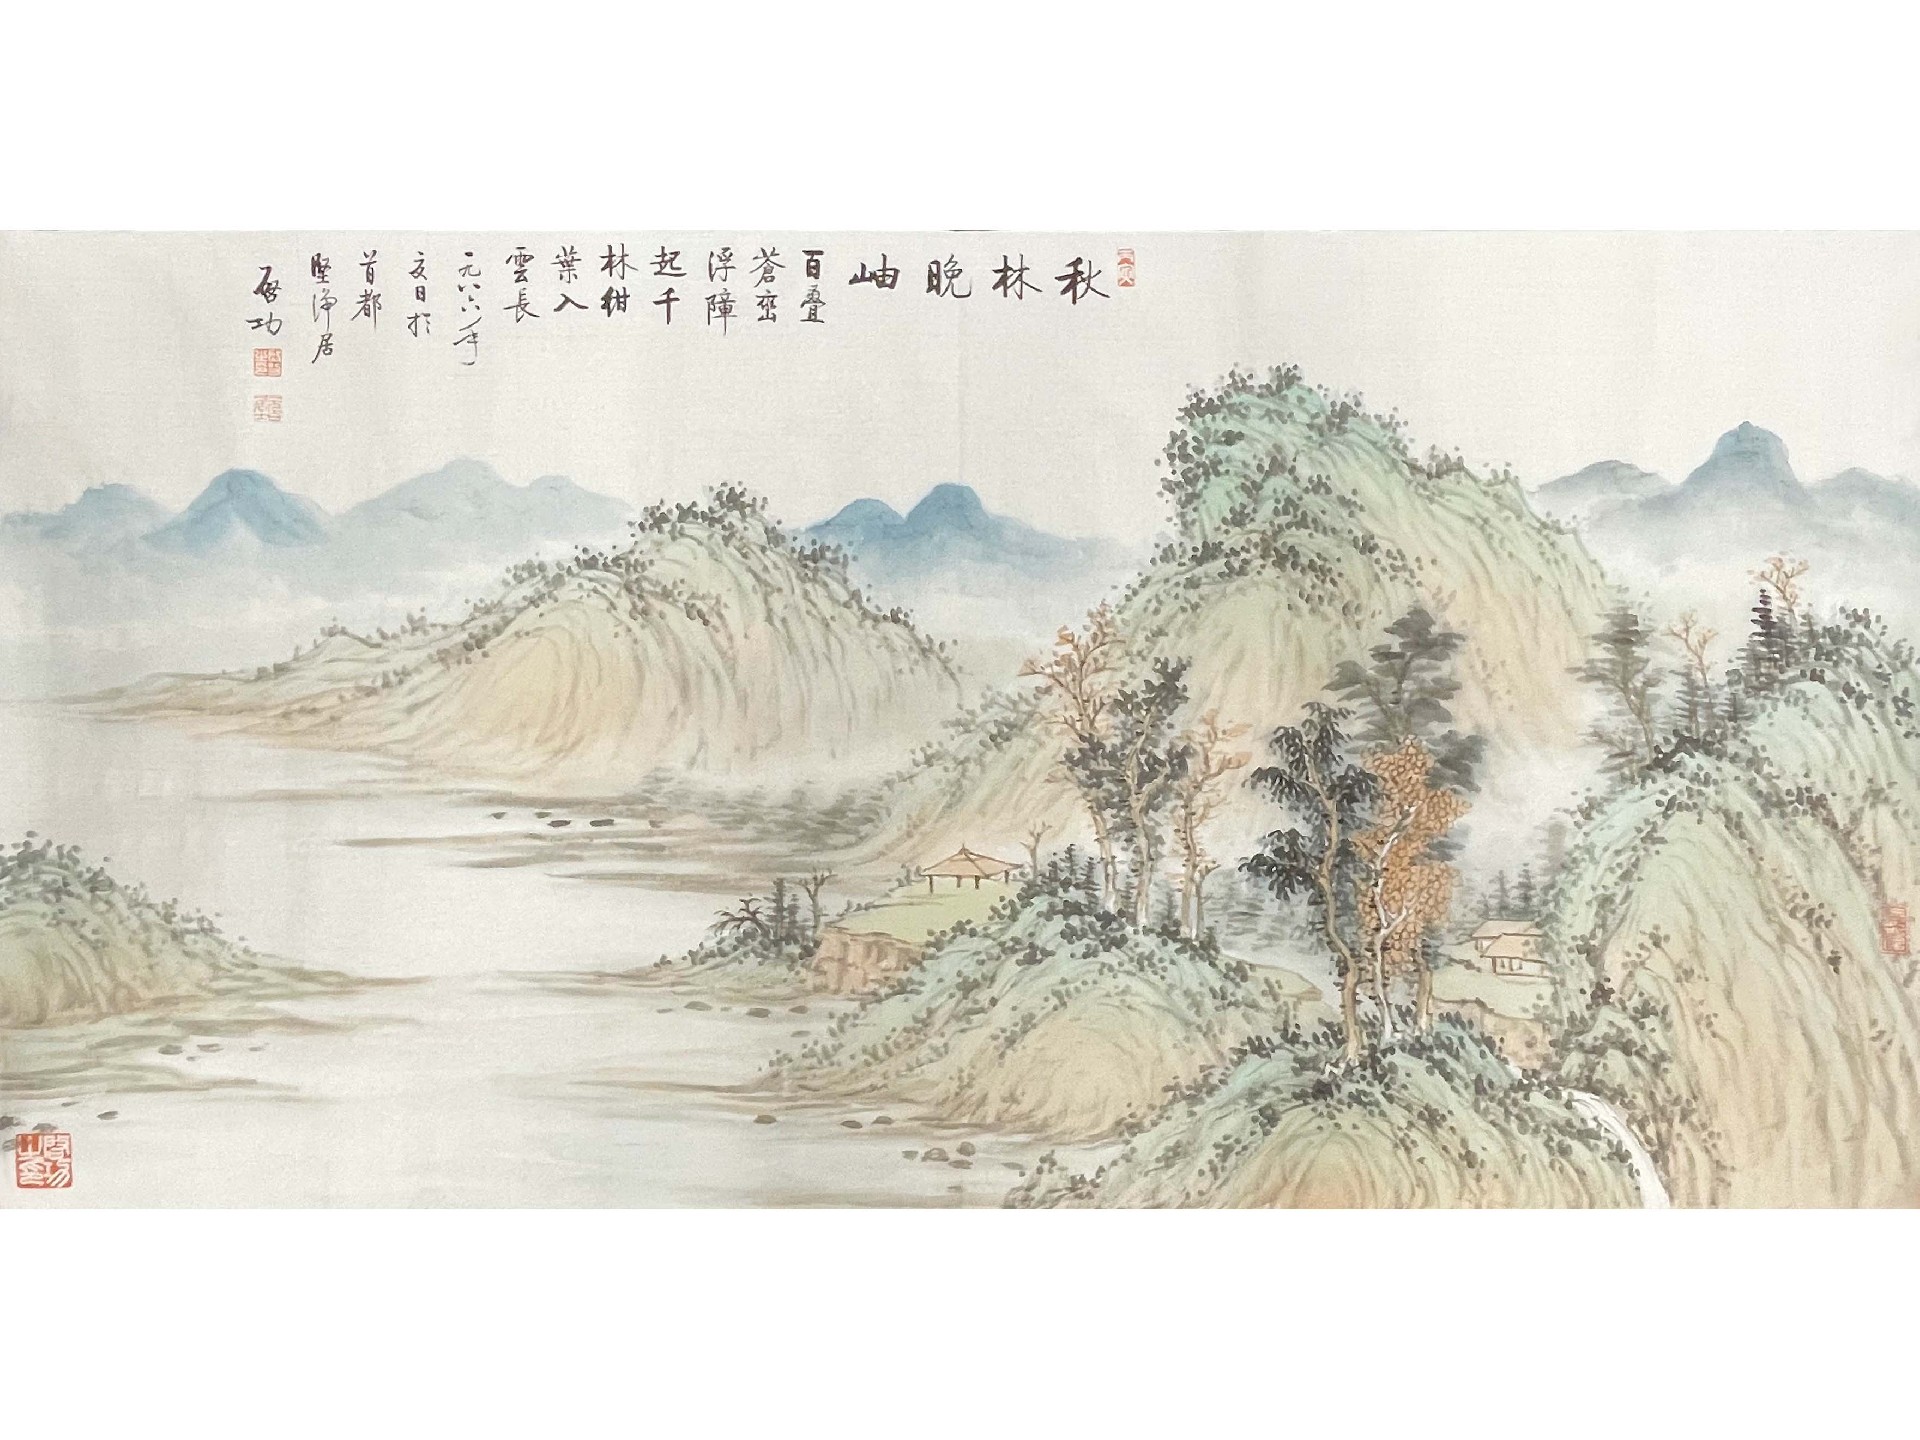 秋林晚岫
百叠
蒼巒
浮障
起千
林紺
葉入
雲長
一九八六年
夏日於
首都
堅淨居
啟功
啟功之印